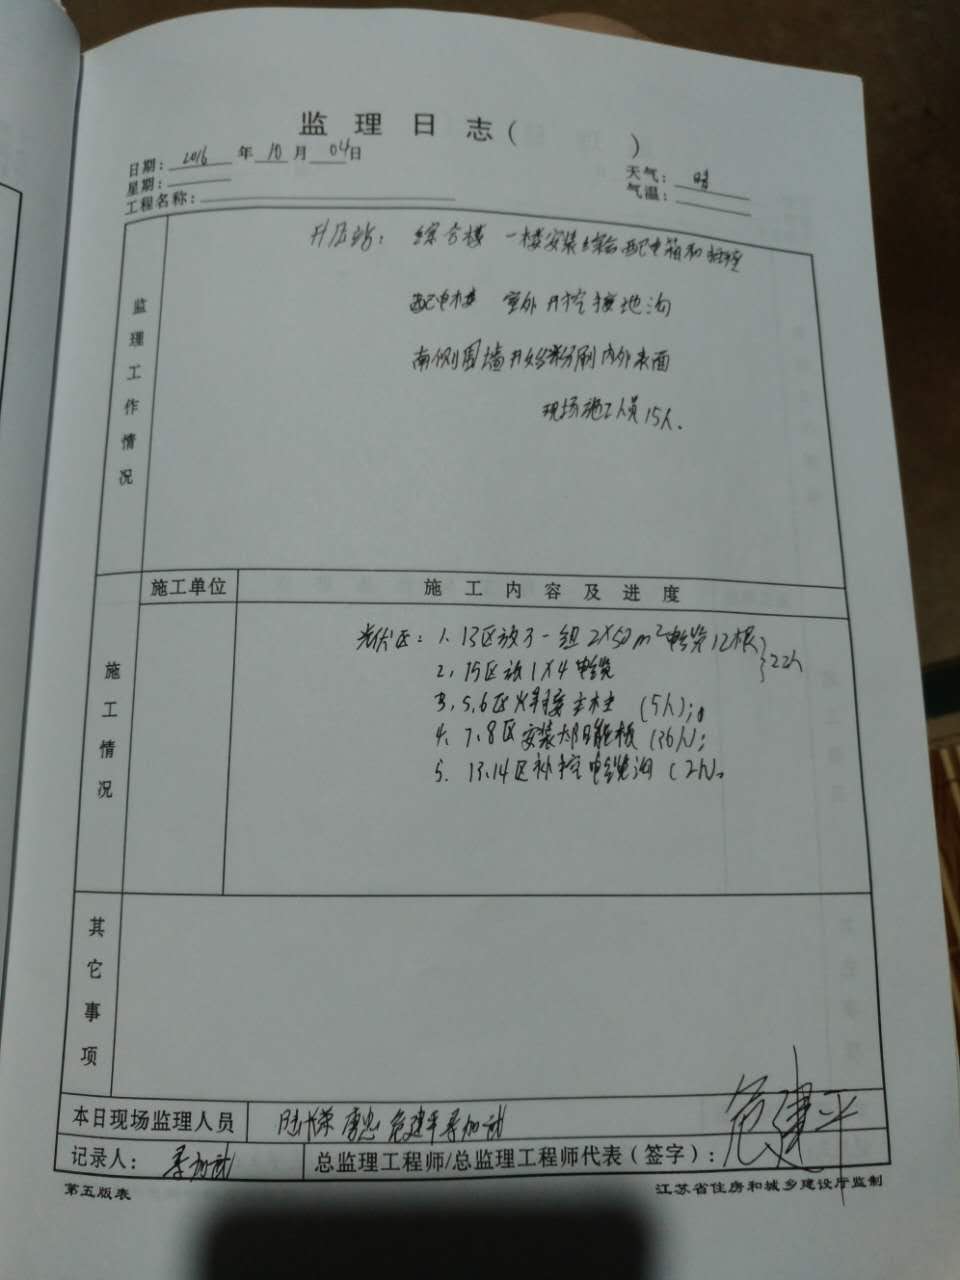 监理日志( )
日期: 2016 年 10 月 04日
天气: 晴
星期:
气温:
工程名称:
监理工作情况
升压站: 综合楼 一楼安装 配电箱和
配电楼 室外开挖接地沟
南侧围墙开始粉刷内外表面
现场施工人员15人.
施工单位
施工内容及进度
施工情况
光伏区: 1. 13区放了一组2×50m²电缆12根 } 22人
2, 15区放1×4电缆
3, 5,6区焊接立柱 (5人);
4, 7,8区安装太阳能板 (36人);
5. 13.14区补挖电缆沟 (2人).
其它事项
本日现场监理人员
危建平
记录人:
总监理工程师/总监理工程师代表(签字): 危建平
第五版表
江苏省住房和城乡建设厅监制